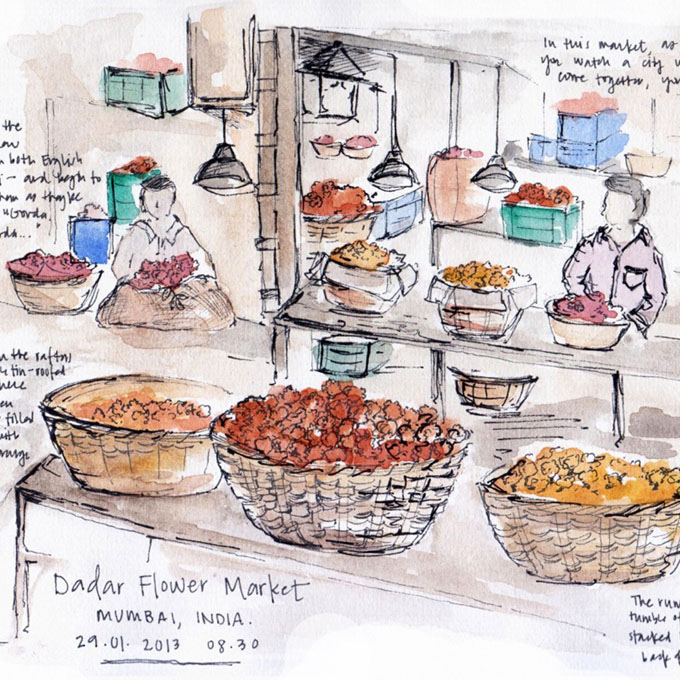 In this market, as
you watch a city
come together,
the
both English
- and begin to
as they're
"Gorda,
..."
the rafters
tin-roofed
filled
with
Dadar Flower Market
MUMBAI, INDIA.
29.01.2013 08.30
The
tumble of
stacked